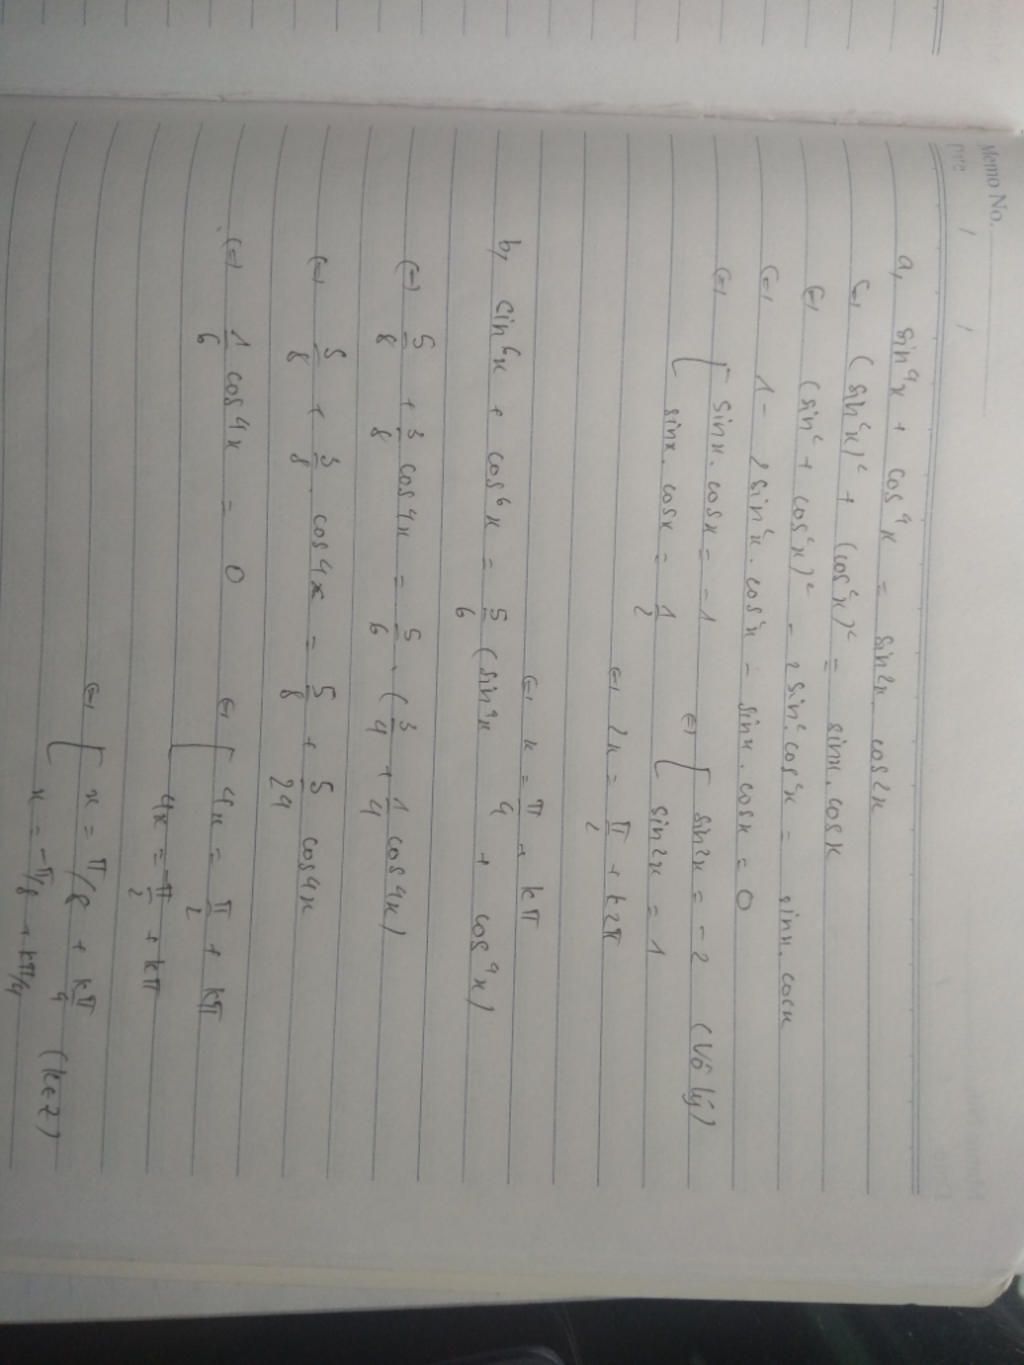 Memo No.
/ /
a, sin⁴x + cos⁴x = sin2x. cos2x
(=) (sin²x)² + (cos²x)² = sinx. cosx
(=) (sin² + cos²x)² - 2sin². cos²x = sinx. cosx
(=) 1 - 2sin²x. cos²x - sinx. cosx = 0
(=) [ sinx. cosx = -1 (=) [ sin2x = -2 (Vô lý)
sinx. cosx = 1/2 sin2x = 1
(=) 2x = π/2 + k2π
(=) x = π/4 + kπ
b, sin⁶x + cos⁶x = 5/6 (sin⁴x + cos⁴x)
(=) 5/8 + 3/8 cos4x = 5/6 . (3/4 + 1/4 cos4x)
(=) 5/8 + 3/8 . cos4x = 5/8 + 5/24 cos4x
(=) 1/6 cos4x = 0 (=) [ 4x = π/2 + kπ
4x = -π/2 + kπ
(=) [ x = π/8 + kπ/4 (k∈Z)
x = -π/8 + kπ/4